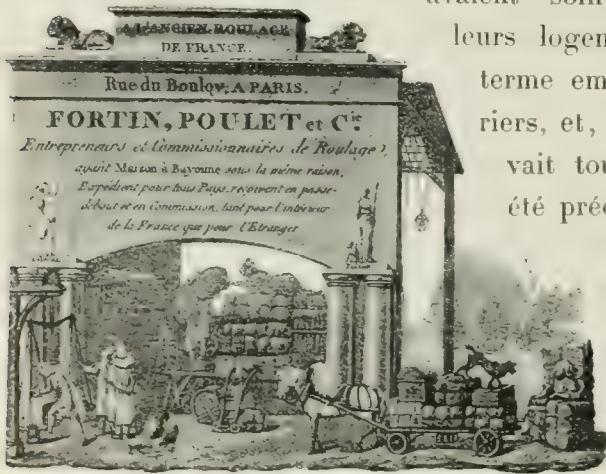 A L'ANCIEN ROULAGE
DE FRANCE.
Rue du Bouloy, A PARIS.
FORTIN, POULET et Cie.
Entrepreneurs et Commissionnaires de Roulage,
ayant Maison à Bayonne sous la même raison,
Expédient pour tous Pays, reçoivent en passe-
debout et en Commission, tant pour l'intérieur
de la France que pour l'Etranger
leurs logem
terme em
riers, et,
vait tou
été préc